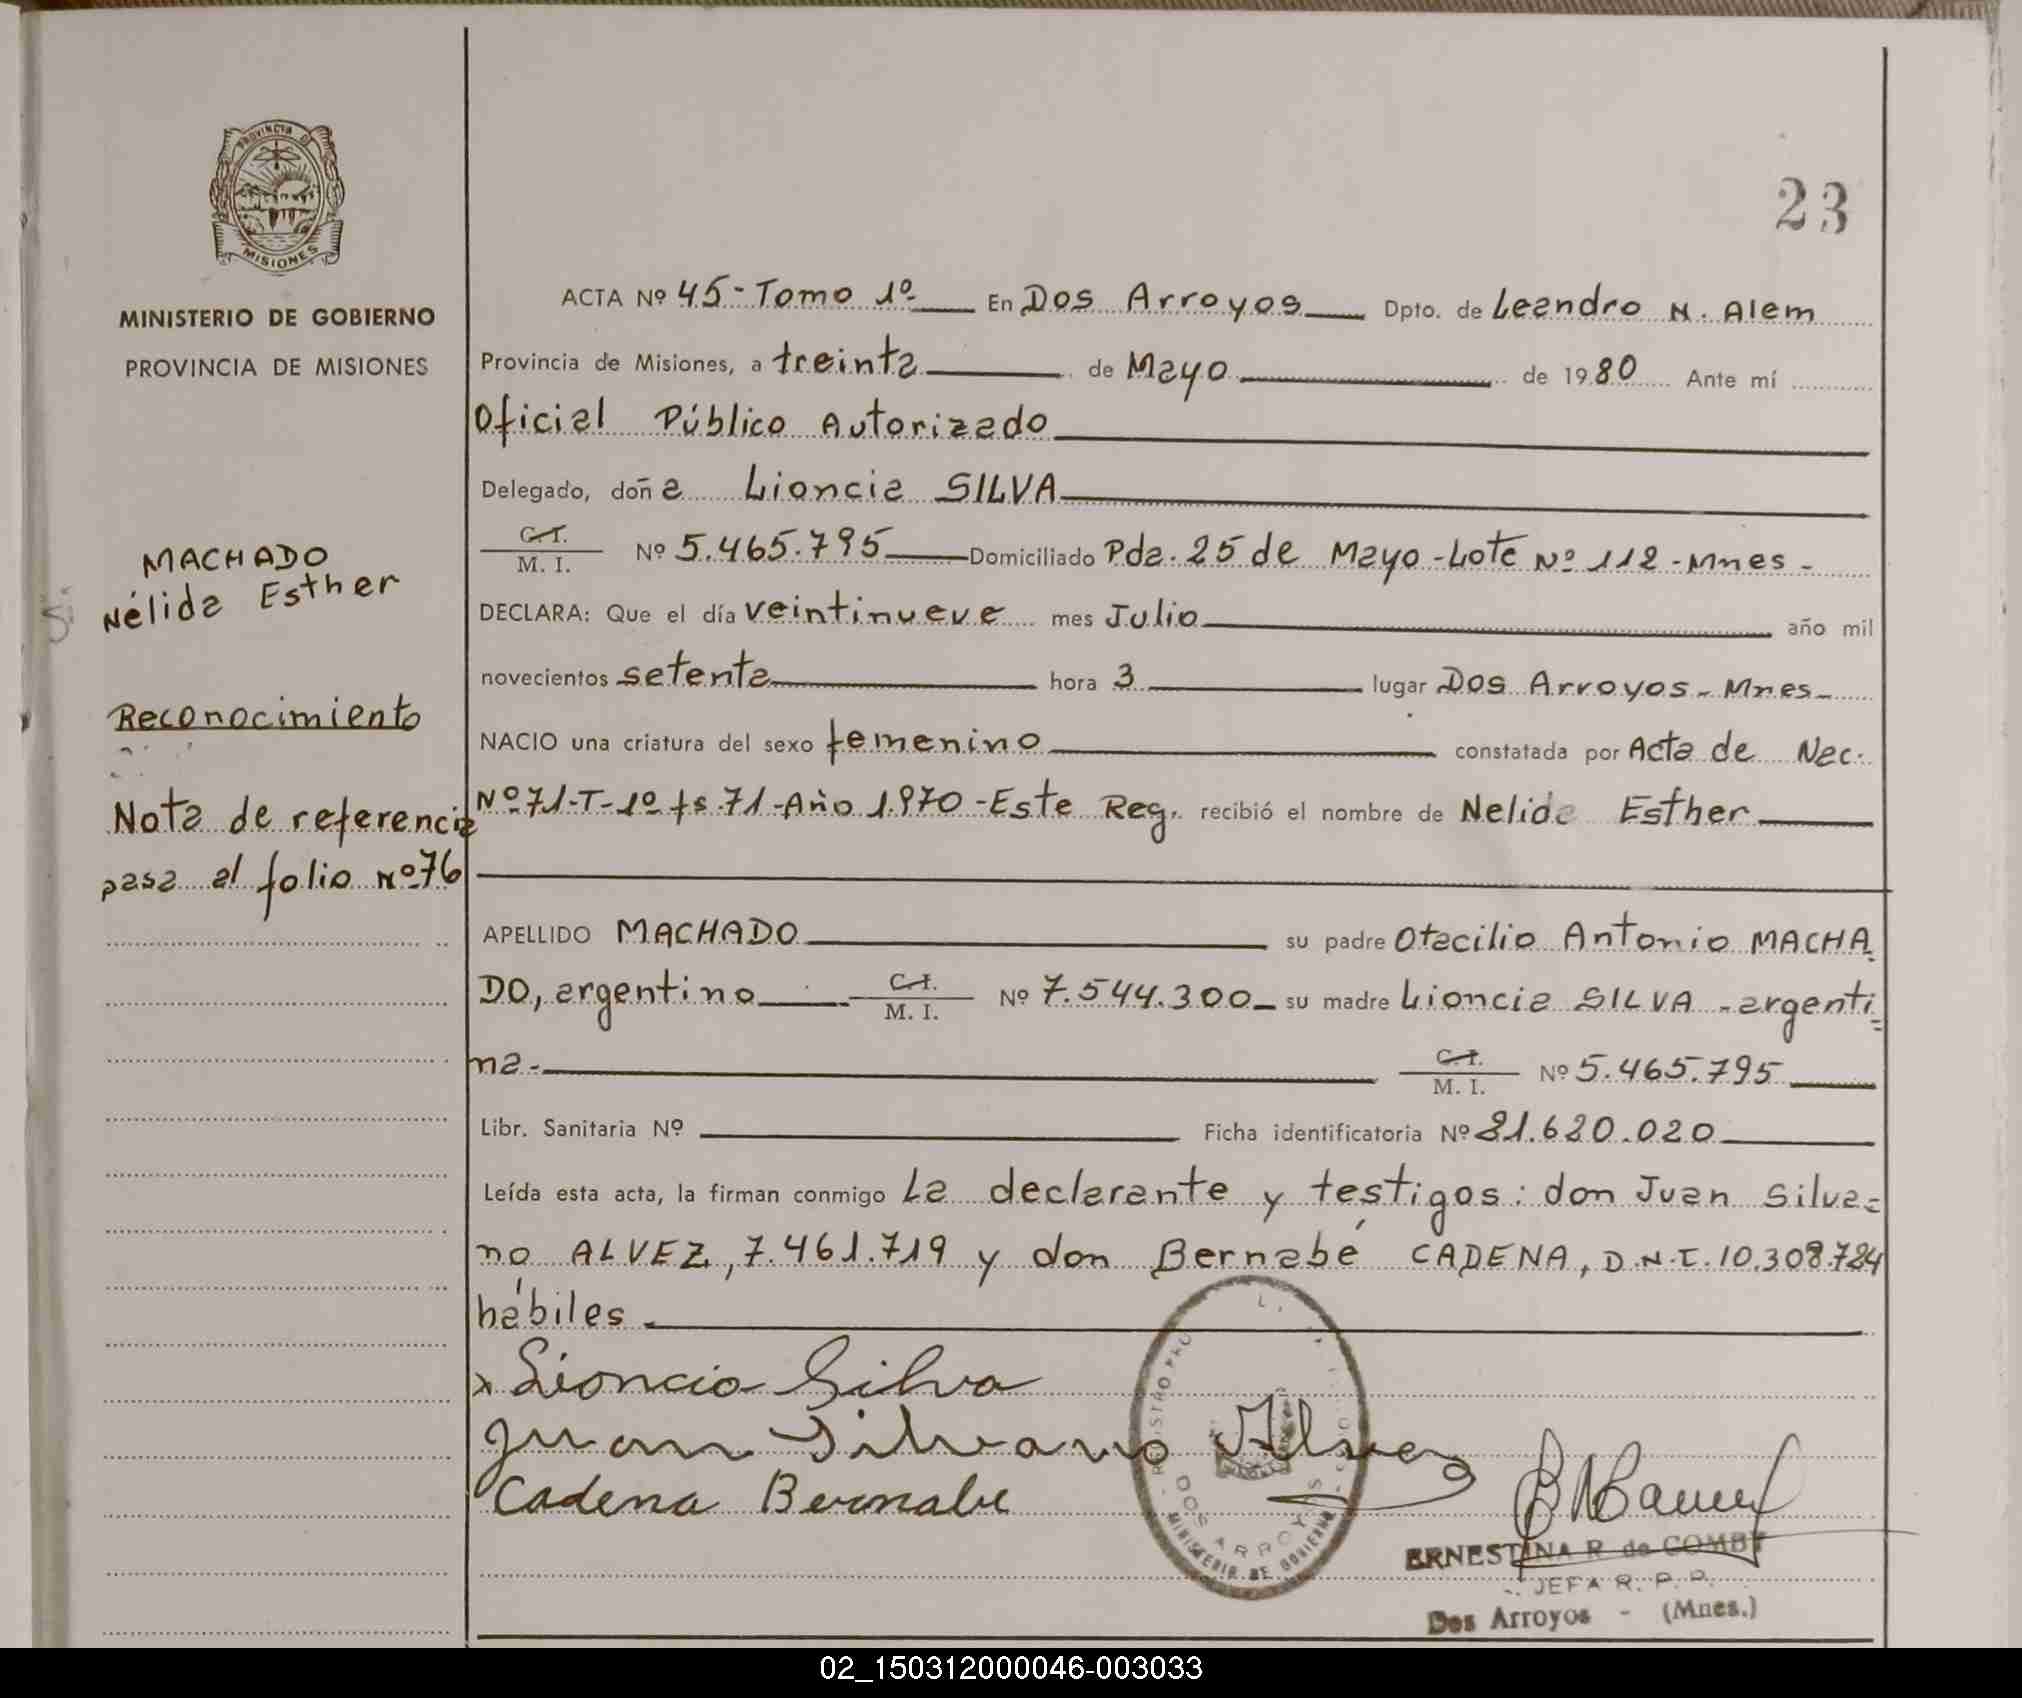 PROVINCIA DE
MISIONES
MINISTERIO DE GOBIERNO
PROVINCIA DE MISIONES
MACHADO
Nélida Esther
Reconocimiento
Nota de referencia
pasa al folio Nº 76
23
ACTA Nº 45-Tomo 1º En Dos Arroyos Dpto. de Leandro N. Alem
Provincia de Misiones, a treinta de Mayo de 1980 Ante mí
Oficial Público Autorizado
Delegado, doña Lioncia SILVA
C.I.
M. I. Nº 5.465.795 Domiciliado Pda. 25 de Mayo-Lote Nº 112-Mnes-
DECLARA: Que el día veintinueve mes Julio año mil
novecientos setenta hora 3 lugar Dos Arroyos-Mnes-
NACIO una criatura del sexo femenino constatada por Acta de Nac.
Nº 71-T-1º fs. 71-Año 1.970-Este Reg. recibió el nombre de Nelida Esther
APELLIDO MACHADO su padre Otacilio Antonio MACHA
DO, argentino C.I. M. I. Nº 7.544.300 su madre Lioncia SILVA-argenti=
na- C.I. M. I. Nº 5.465.795
Libr. Sanitaria Nº Ficha identificatoria Nº 21.620.020
Leída esta acta, la firman conmigo La declarante y testigos: don Juan Silva=
no ALVEZ, 7.461.719 y don Bernabé CADENA, D.N.I. 10.308.784
hábiles
x Lioncia Silva
Juan Silvano Alvez
Cadena Bernabe
DOS ARROYOS
MINISTERIO DE GOBIERNO
ERNESTINA R. de COMBY
JEFA R. P. P.
Dos Arroyos - (Mnes.)
02_150312000046-003033